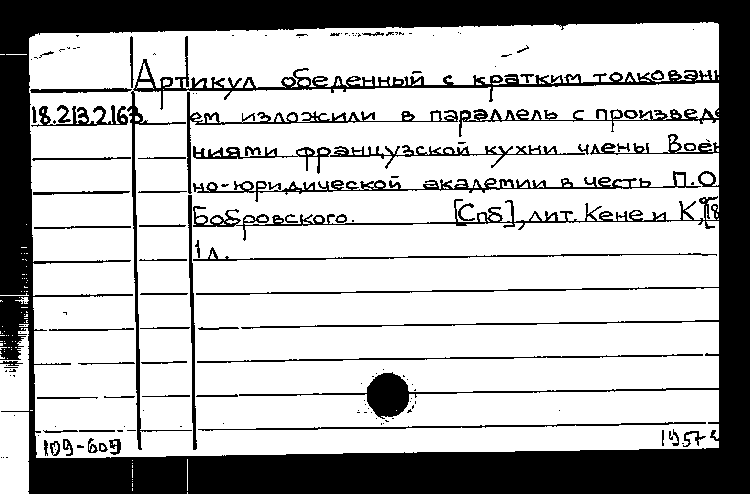 Артикул обеденный с кратким толковани
18.213.2.163. ем изложили в параллель с произведе
ниями французской кухни члены Воен
но-юридической академии в честь П.О.
Бобровского. [Спб], лит. Кене и К°, [18
1 л.
109-609 1957